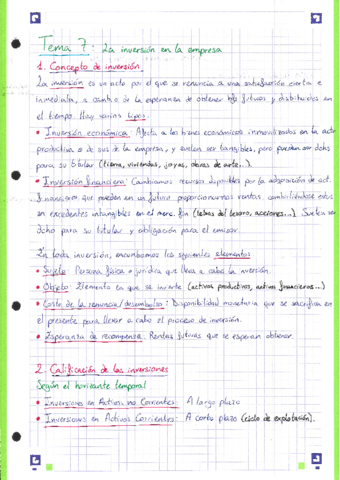 Tema 7: La inversión en la empresa
1. Concepto de inversión
La inversión es un acto por el que se renuncia a una satisfacción cierta e
inmediata, a cambio de la esperanza de obtener bfs futuros y distribuidos en
el tiempo. Hay varios tipos:
• Inversión económica: Afecta a los bienes económicos inmovilizados en la activ
productiva o de sus de la empresa, y suelen ser tangibles, pero pueden ser dchos
para su titular (tierra, viviendas, joyas, obras de arte..)
• Inversión financiera: Cambiamos recursos disponibles por la adquisición de act.
financieros que pueden en un futuro proporcionarnos rentas cambiándose estos
en excedentes intangibles en el merc. fin (letras del tesoro, acciones...) Suelen ser
dcho para su titular y obligación para el emisor.
En toda inversión, encontramos los siguientes elementos:
• Sujeto: Persona física o jurídica que lleva a cabo la inversión.
• Objeto: Elemento en que se invierte (activos productivos, activos financieros...)
• Coste de la renuncia/desembolso: Disponibilidad monetaria que se sacrifica en
el presente para llevar a cabo el proceso de inversión.
• Esperanza de recompensa: Rentas futuras que se esperan obtener.
2. Calificación de las inversiones
Según el horizonte temporal
• Inversiones en Activos no Corrientes: A largo plazo
• Inversiones en Activos Corrientes: A corto plazo (ciclo de explotación).